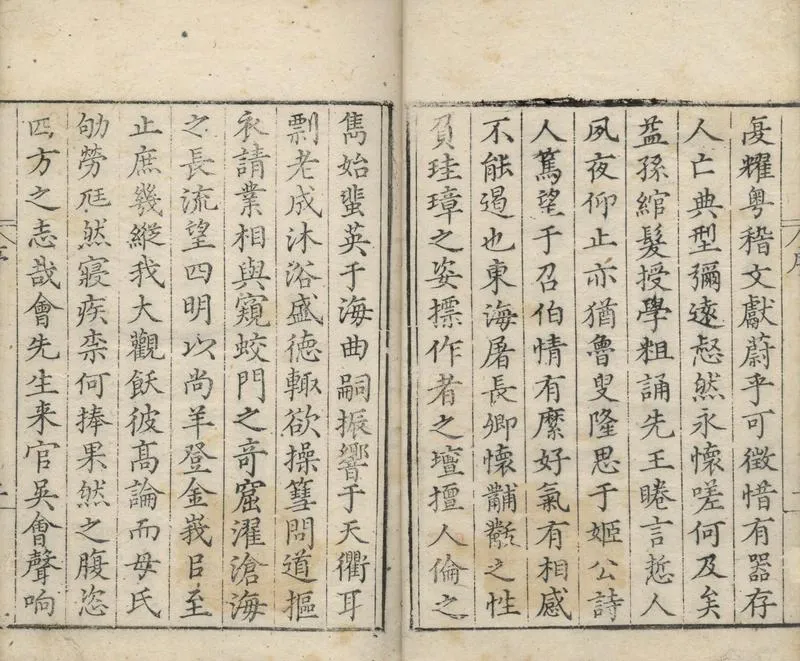 憂耀粤稽文獻蔚乎可徵惜有器存
人亡典型彌遠惄然永懷嗟何及矣
益孫綰髮授學粗誦先王睠言悊人
夙夜仰止亦猶魯叟隆思于姬公詩
人篤望于召伯情有縻好氣有相感
不能遏也東海屠長卿懷黼黻之性
負珪璋之姿摽作者之壇擅人倫之
雋始蜚英于海曲嗣振響于天衢耳
剽老成沐浴盛德輙欲操篲問道摳
衣請業相與窺蛟門之奇窟濯滄海
之長流望四明以尚羊登金峩㠯至
止庶幾縱我大觀飫彼高論而母氏
劬勞尫然寢疾柰何捧果然之腹恣
四方之志哉會先生来官吳會聲响